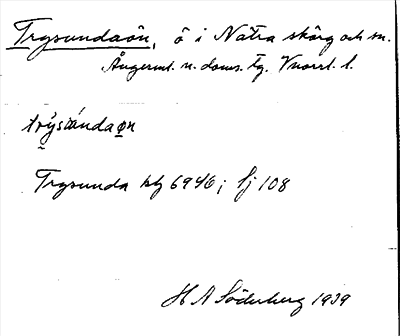 Trysundaön, ö i Nätra skärg och sn.
Ångerml. n. doms. tg. Vnorrl. l.
trýsùndaøn
Trysunda blg 6946; Sj 108
H A Söderberg 1939